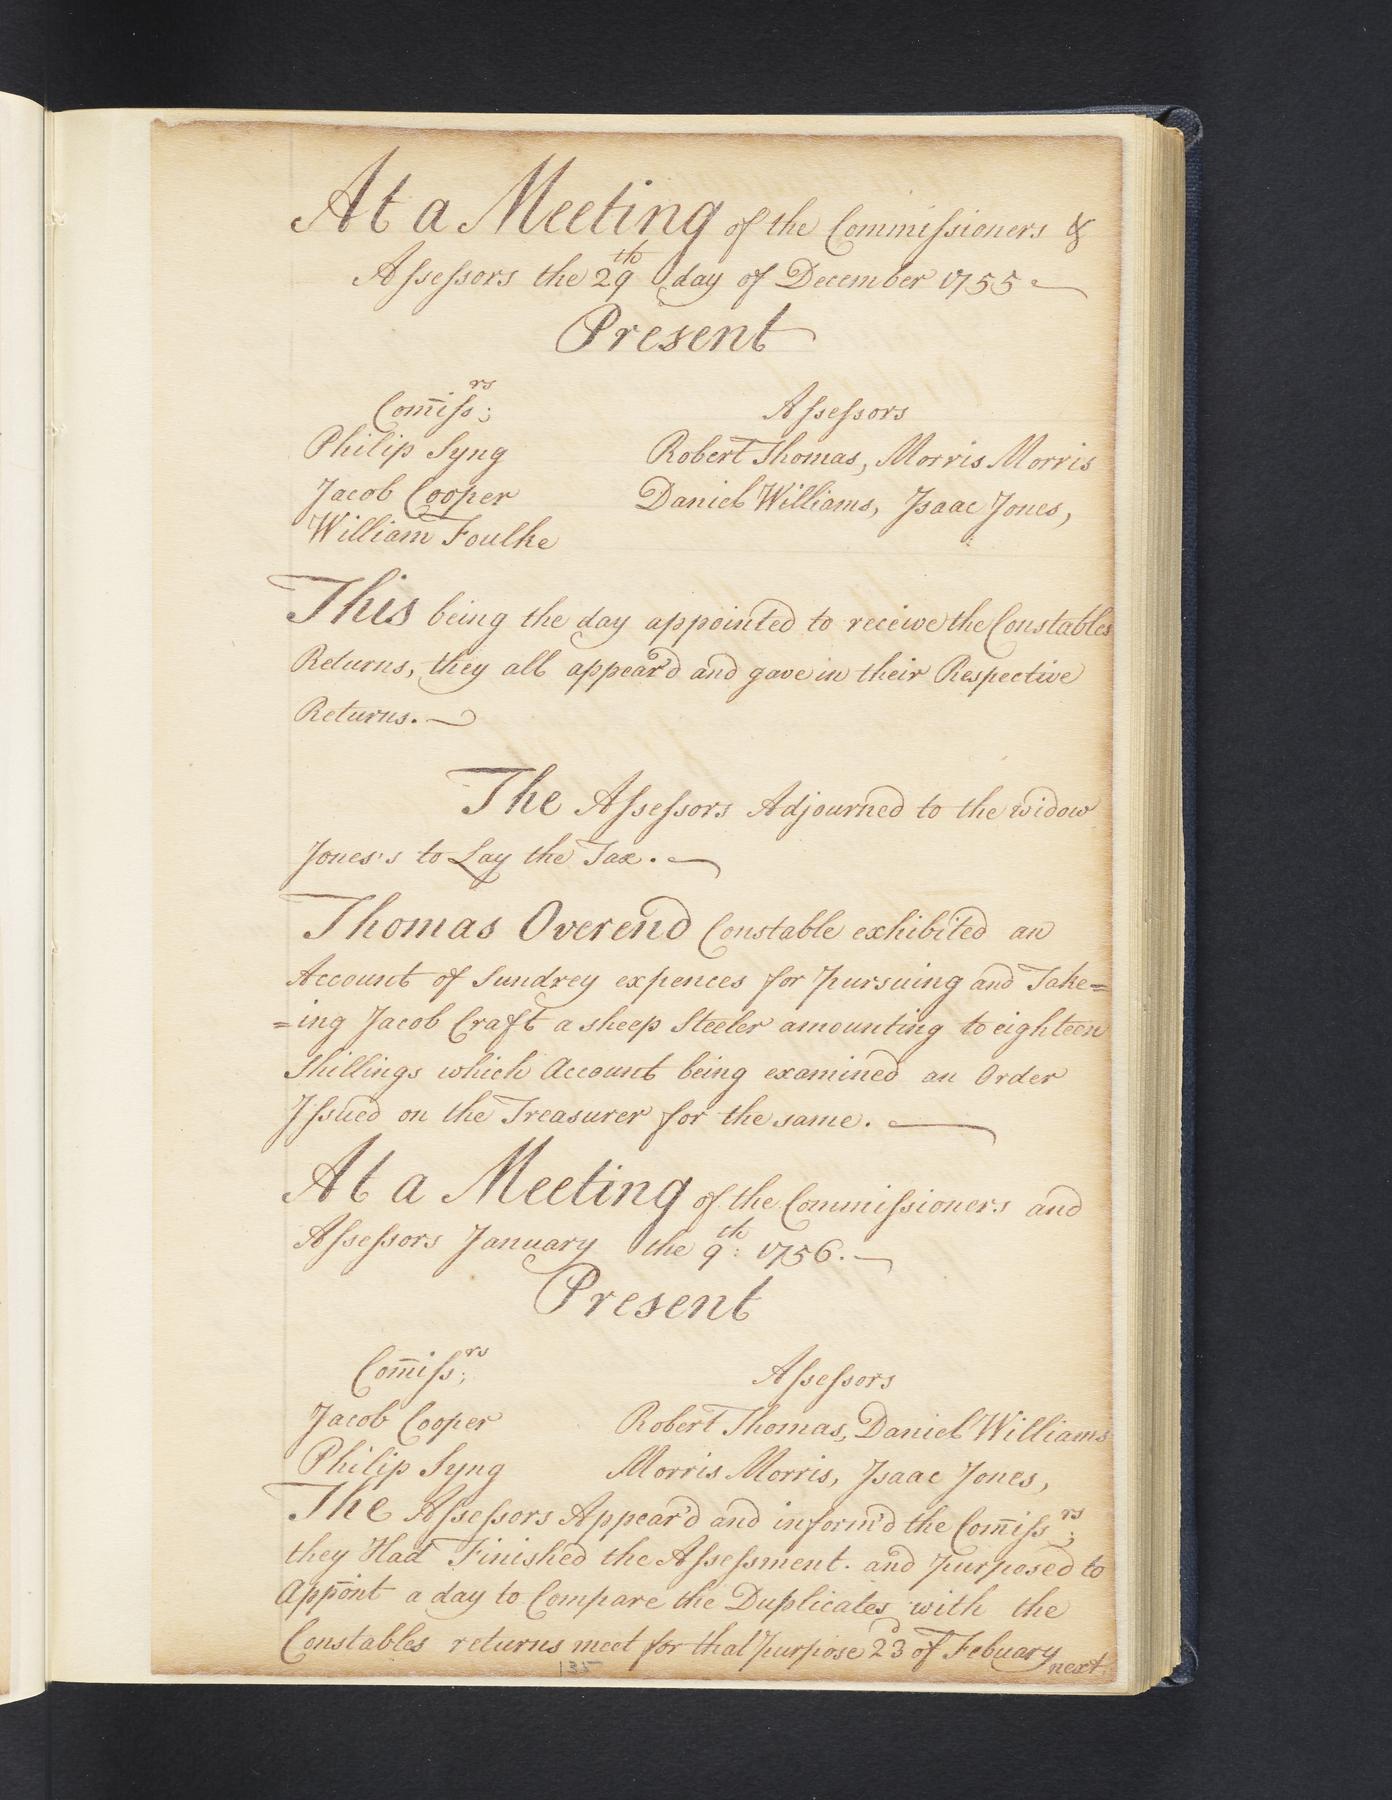 At a Meeting of the Commiſsioners &
Aſseſsors the 29th day of December 1755
Present
Com̄iſs:rs Aſseſsors
Philip Syng Robert Thomas, Morris Morris
Jacob Cooper Daniel Williams, Isaac Jones,
William Foulke
This being the day appointed to receive the Constables
Returns, they all appear'd and gave in their Respective
Returns.
The Aſseſsors Adjourned to the widow
Jones's to Lay the Tax.
Thomas Overend Constable exhibited an
Account of Sundrey expences for pursuing and Take=
=ing Jacob Craft a sheep Steeler amounting to eighteen
Shillings which Account being examined an Order
Iſsued on the Treasurer for the same.
At a Meeting of the Commiſsioners and
Aſseſsors January the 9th: 1756.
Present
Com̄iſs:rs Aſseſsors
Jacob Cooper Robert Thomas, Daniel Williams
Philip Syng Morris Morris, Isaac Jones,
The Aſseſsors Appear'd and inform'd the Com̄iſs:rs
they Had Finished the Aſseſsment. and purposed to
Appōnt a day to Compare the Duplicates with the
Constables returns meet for that purpose 23d of Febuary
next.
135